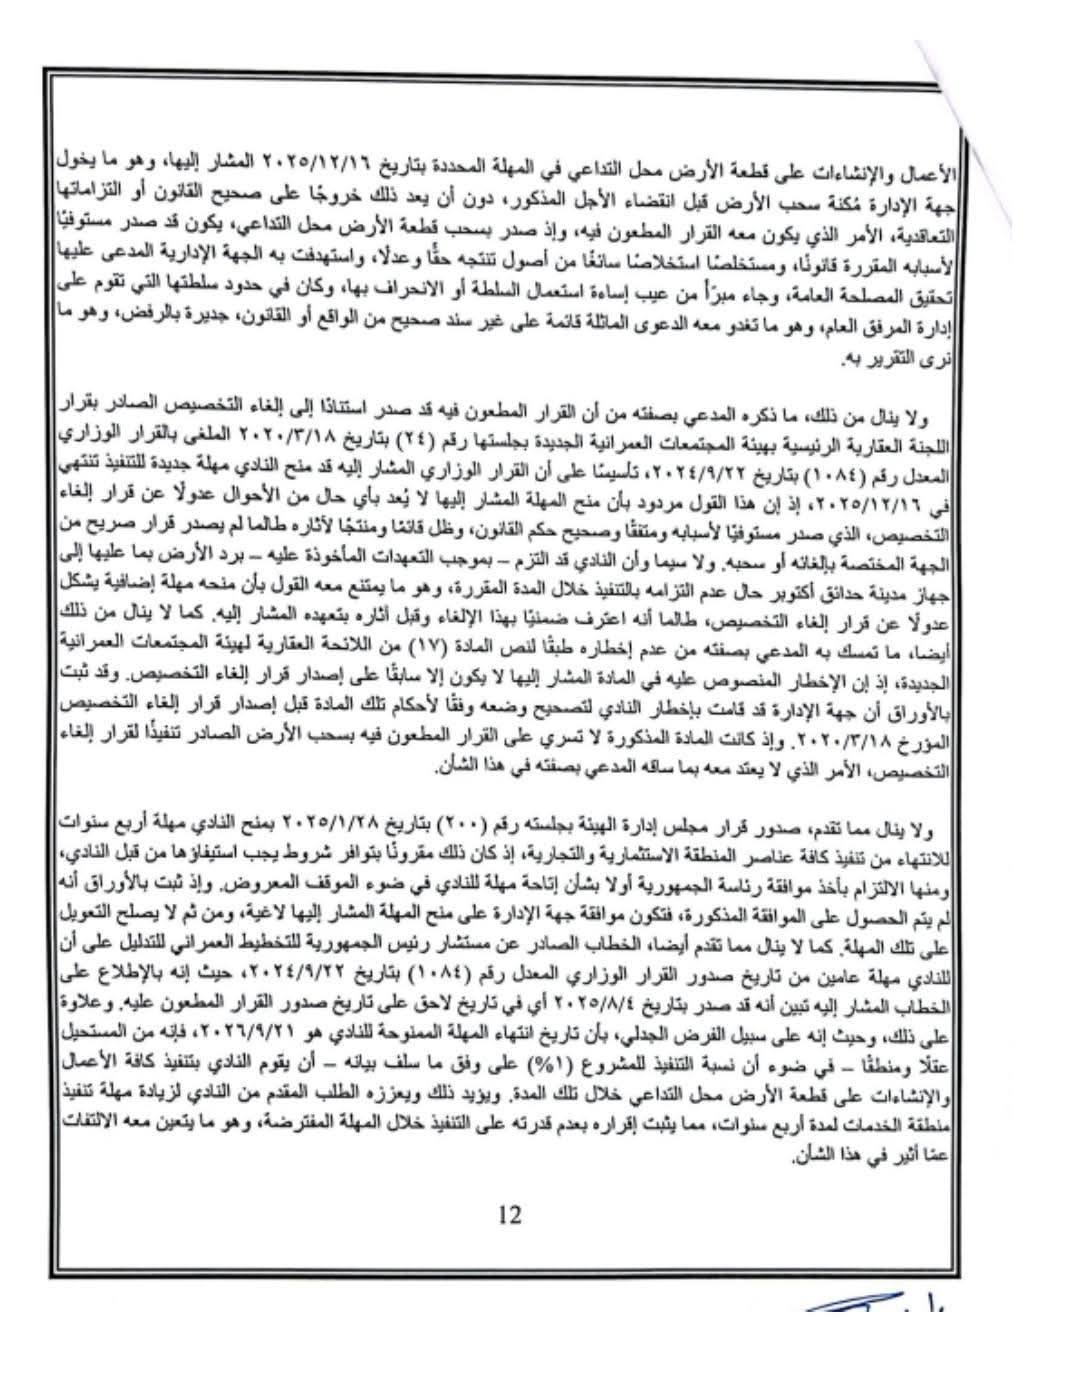 الأعمال والإنشاءات على قطعة الأرض محل التداعي في المهلة المحددة بتاريخ ٢٠٢٥/١٢/١٦ المشار إليها، وهو ما يخول
جهة الإدارة مُكنة سحب الأرض قبل انقضاء الأجل المذكور، دون أن يعد ذلك خروجًا على صحيح القانون أو التزاماتها
التعاقدية، الأمر الذي يكون معه القرار المطعون فيه، وإذ صدر بسحب قطعة الأرض محل التداعي، يكون قد صدر مستوفيًا
لأسبابه المقررة قانونًا، ومستخلصًا استخلاصًا سائغًا من أصول تنتجه حقًا وعدلًا، واستهدفت به الجهة الإدارية المدعى عليها
تحقيق المصلحة العامة، وجاء مبرّأ من عيب إساءة استعمال السلطة أو الانحراف بها، وكان في حدود سلطتها التي تقوم على
إدارة المرفق العام، وهو ما تغدو معه الدعوى الماثلة قائمة على غير سند صحيح من الواقع أو القانون، جديرة بالرفض، وهو ما
نرى التقرير به.
ولا ينال من ذلك، ما ذكره المدعي بصفته من أن القرار المطعون فيه قد صدر استنادًا إلى إلغاء التخصيص الصادر بقرار
اللجنة العقارية الرئيسية بهيئة المجتمعات العمرانية الجديدة بجلستها رقم (٢٤) بتاريخ ٢٠٢٠/٣/١٨ الملغى بالقرار الوزاري
المعدل رقم (١٠٨٤) بتاريخ ٢٠٢٤/٩/٢٢، تأسيسًا على أن القرار الوزاري المشار إليه قد منح النادي مهلة جديدة للتنفيذ تنتهي
في ٢٠٢٥/١٢/١٦، إذ إن هذا القول مردود بأن منح المهلة المشار إليها لا يُعد بأي حال من الأحوال عدولًا عن قرار إلغاء
التخصيص، الذي صدر مستوفيًا لأسبابه ومتفقًا وصحيح حكم القانون، وظل قائمًا ومنتجًا لآثاره طالما لم يصدر قرار صريح من
الجهة المختصة بإلغائه أو سحبه. ولا سيما وأن النادي قد التزم – بموجب التعهدات المأخوذة عليه – برد الأرض بما عليها إلى
جهاز مدينة حدائق أكتوبر حال عدم التزامه بالتنفيذ خلال المدة المقررة، وهو ما يمتنع معه القول بأن منحه مهلة إضافية يشكل
عدولًا عن قرار إلغاء التخصيص، طالما أنه اعترف ضمنيًا بهذا الإلغاء وقبل آثاره بتعهده المشار إليه. كما لا ينال من ذلك
أيضا، ما تمسك به المدعي بصفته من عدم إخطاره طبقًا لنص المادة (١٧) من اللائحة العقارية لهيئة المجتمعات العمرانية
الجديدة، إذ إن الإخطار المنصوص عليه في المادة المشار إليها لا يكون إلا سابقًا على إصدار قرار إلغاء التخصيص. وقد ثبت
بالأوراق أن جهة الإدارة قد قامت بإخطار النادي لتصحيح وضعه وفقًا لأحكام تلك المادة قبل إصدار قرار إلغاء التخصيص
المؤرخ ٢٠٢٠/٣/١٨. وإذ كانت المادة المذكورة لا تسري على القرار المطعون فيه بسحب الأرض الصادر تنفيذًا لقرار إلغاء
التخصيص، الأمر الذي لا يعتد معه بما ساقه المدعي بصفته في هذا الشأن.
ولا ينال مما تقدم، صدور قرار مجلس إدارة الهيئة بجلسته رقم (٢٠٠) بتاريخ ٢٠٢٥/١/٢٨ بمنح النادي مهلة أربع سنوات
للانتهاء من تنفيذ كافة عناصر المنطقة الاستثمارية والتجارية، إذ كان ذلك مقرونًا بتوافر شروط يجب استيفاؤها من قبل النادي،
ومنها الالتزام بأخذ موافقة رئاسة الجمهورية أولا بشأن إتاحة مهلة للنادي في ضوء الموقف المعروض. وإذ ثبت بالأوراق أنه
لم يتم الحصول على الموافقة المذكورة، فتكون موافقة جهة الإدارة على منح المهلة المشار إليها لاغية، ومن ثم لا يصلح التعويل
على تلك المهلة. كما لا ينال مما تقدم أيضا، الخطاب الصادر عن مستشار رئيس الجمهورية للتخطيط العمراني للتدليل على أن
للنادي مهلة عامين من تاريخ صدور القرار الوزاري المعدل رقم (١٠٨٤) بتاريخ ٢٠٢٤/٩/٢٢، حيث إنه بالإطلاع على
الخطاب المشار إليه تبين أنه قد صدر بتاريخ ٢٠٢٥/٨/٤ أي في تاريخ لاحق على تاريخ صدور القرار المطعون عليه. وعلاوة
على ذلك، وحيث إنه على سبيل الفرض الجدلي، بأن تاريخ انتهاء المهلة الممنوحة للنادي هو ٢٠٢٦/٩/٢١، فإنه من المستحيل
عقلًا ومنطقًا – في ضوء أن نسبة التنفيذ للمشروع (١%) على وفق ما سلف بيانه – أن يقوم النادي بتنفيذ كافة الأعمال
والإنشاءات على قطعة الأرض محل التداعي خلال تلك المدة. ويؤيد ذلك ويعززه الطلب المقدم من النادي لزيادة مهلة تنفيذ
منطقة الخدمات لمدة أربع سنوات، مما يثبت إقراره بعدم قدرته على التنفيذ خلال المهلة المفترضة، وهو ما يتعين معه الالتفات
عمّا أثير في هذا الشأن.
12